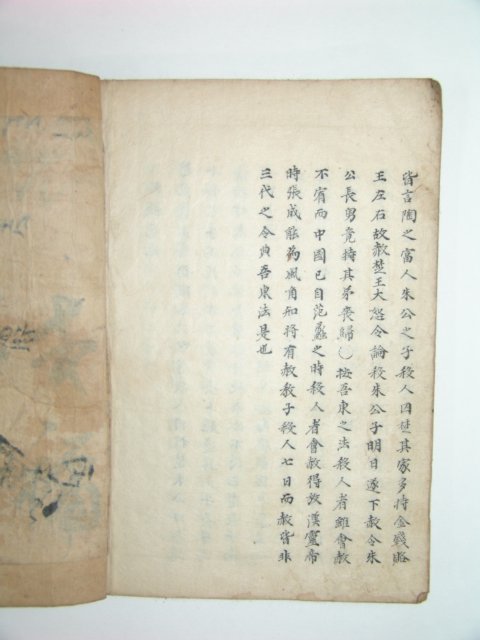 皆言陶之富人朱公之子殺人囚楚其家多持金錢賂
王左右故赦楚王大怒令論殺朱公子明日遂下赦令朱
公長男竟持其弟喪歸○按吾東之法殺人者雖會赦
不宥而中國已自范蠡之時殺人者會赦得放漢靈帝
時張成能爲風角知將有赦教子殺人七日而赦皆非
三代之令典吾東法是也